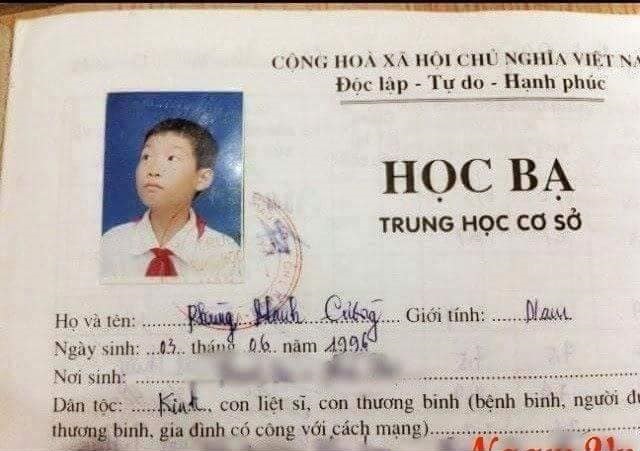 CỘNG HOÀ XÃ HỘI CHỦ NGHĨA VIỆT NA
Độc lập - Tự do - Hạnh phúc
HỌC BẠ
TRUNG HỌC CƠ SỞ
Họ và tên: Phùng Mạnh Cường Giới tính: Nam
Ngày sinh: 03 tháng 06 năm 1996
Nơi sinh:
Dân tộc: Kinh, con liệt sĩ, con thương binh (bệnh binh, người đư
thương binh, gia đình có công với cách mạng)